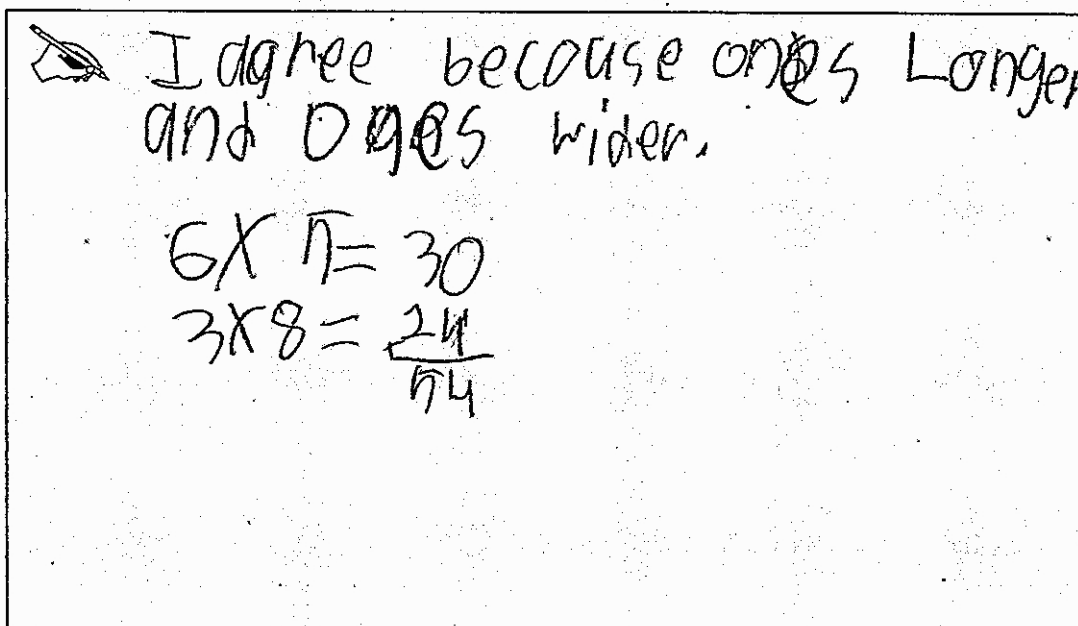 I agree because ones Longer
and Ones wider.
6X 5= 30
3X8= 24
54